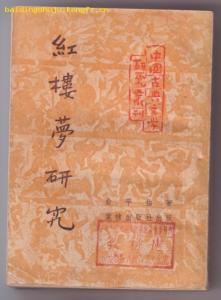 baidingshuju.kongfz.cn
紅樓夢研究
中國古典文學
研究叢刊
俞平伯著
棠棣出版社出版